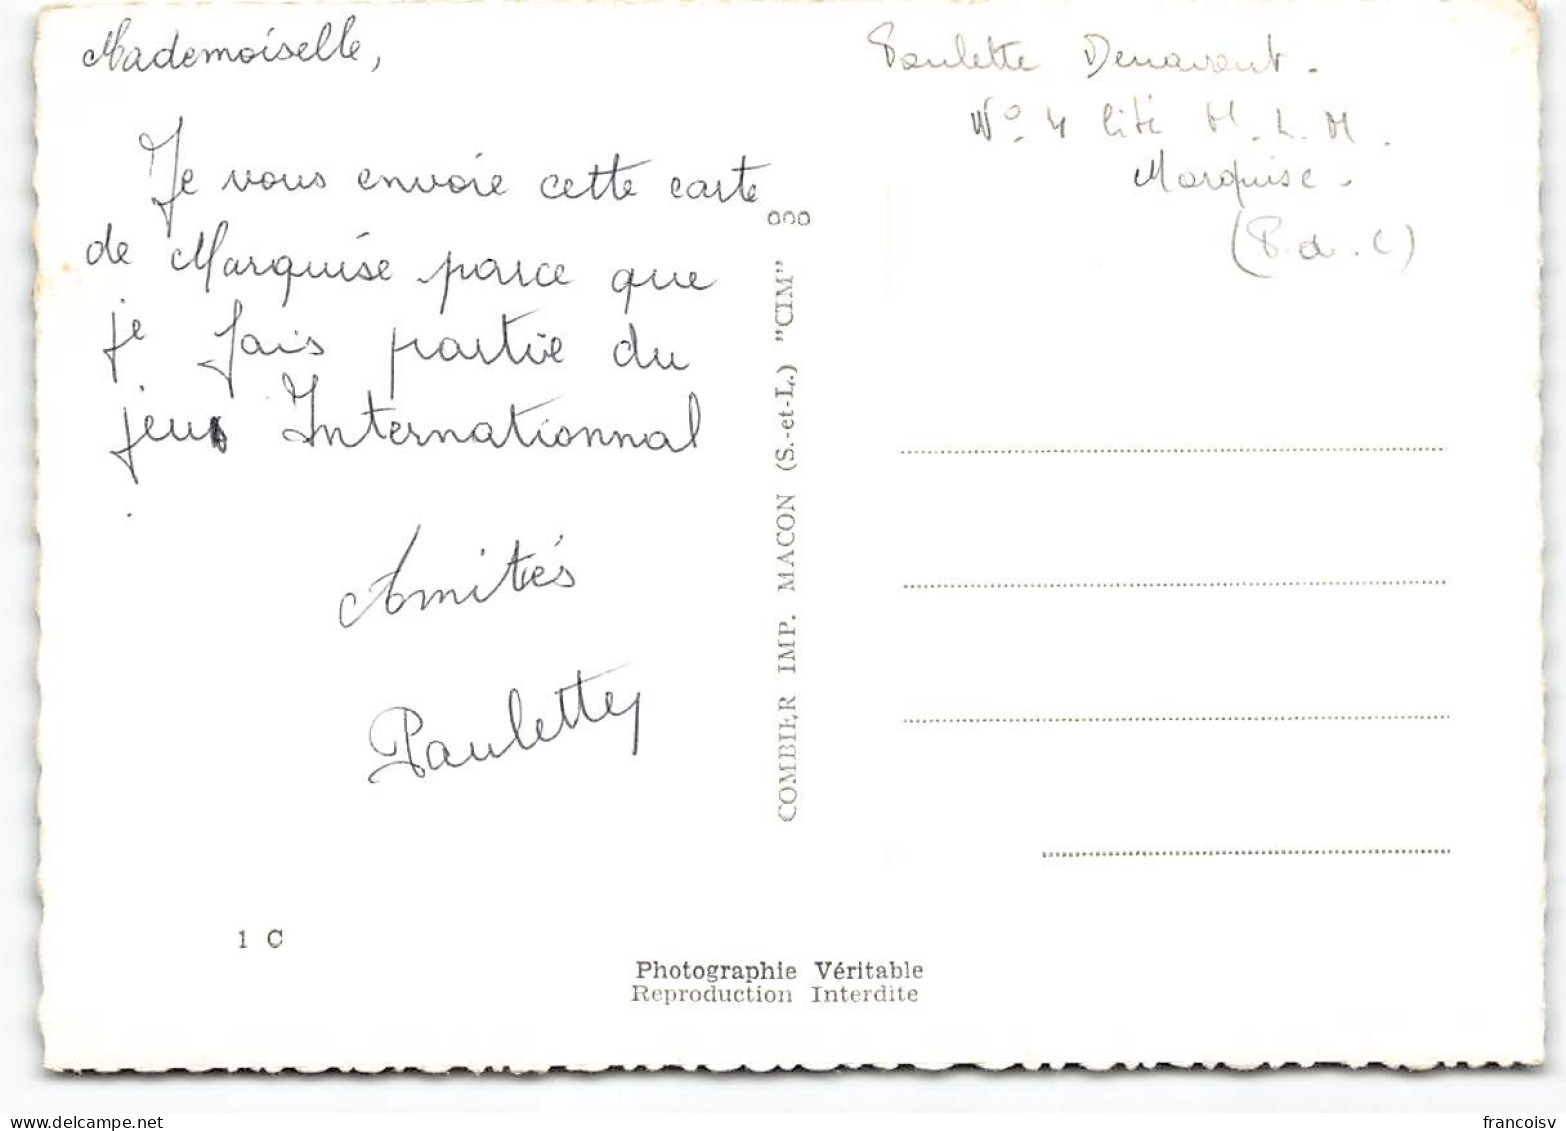 Mademoiselle,
Je vous envoie cette carte
de Marquise parce que
je fais partie du
jeu Internationnal
.
Amitiés
Paulette
Paulette
N° 4 Cité H.L.M.
Marquise.
(P.d.C)
COMBIER IMP. MACON (S.-et-L.) "CIM"
1 C
Photographie Véritable
Reproduction Interdite
francoisv